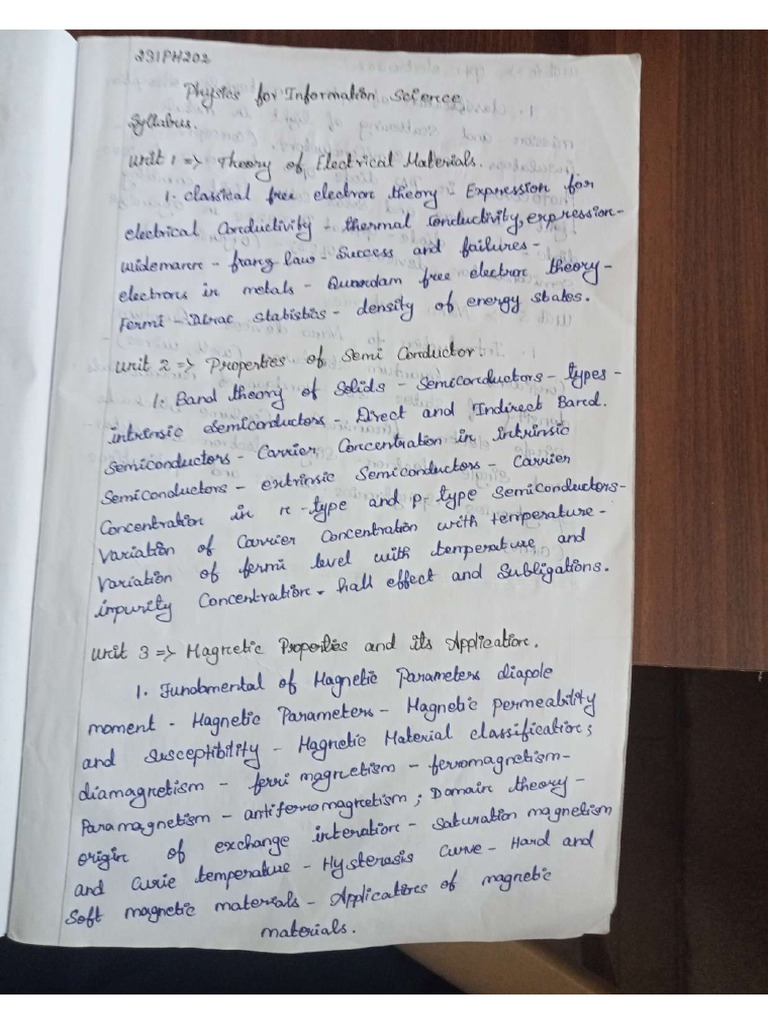 231PH202
Physics for Information Science
Syllabus.
Unit 1 => Theory of Electrical Materials.
1. classical free electron theory - Expression for
electrical Conductivity - thermal conductivity, expression-
widemann - franz law - Success and failures -
electrons in metals - Quandam free electron theory -
Fermi - Dirac Statistics - density of energy states.
Unit 2 => Properties of Semi Conductor.
1. Band theory of Solids - Semiconductors - types -
intrinsic Semiconductors - Direct and Indirect Band.
Semiconductors - Carrier Concentration in intrinsic
Semiconductors - extrinsic Semiconductors - Carrier
Concentration in n-type and p-type Semiconductors-
Variation of Carrier Concentration with temperature -
Variation of fermi level with temperature and
impurity Concentration - hall effect and Subligations.
Unit 3 => Magnetic Properties and its Application.
1. Fundamental of Magnetic Parameters diapole
moment - Magnetic Parameters - Magnetic permeability
and Susceptibility - Magnetic Material classification;
diamagnetism - ferri magnetism - ferromagnetism-
Paramagnetism - antiferromagnetism; Domain theory -
origin of exchange interation - Saturation magnetism
and Curie temperature - Hysterasis Curve - Hard and
Soft magnetic materials - Applications of magnetic
materials.